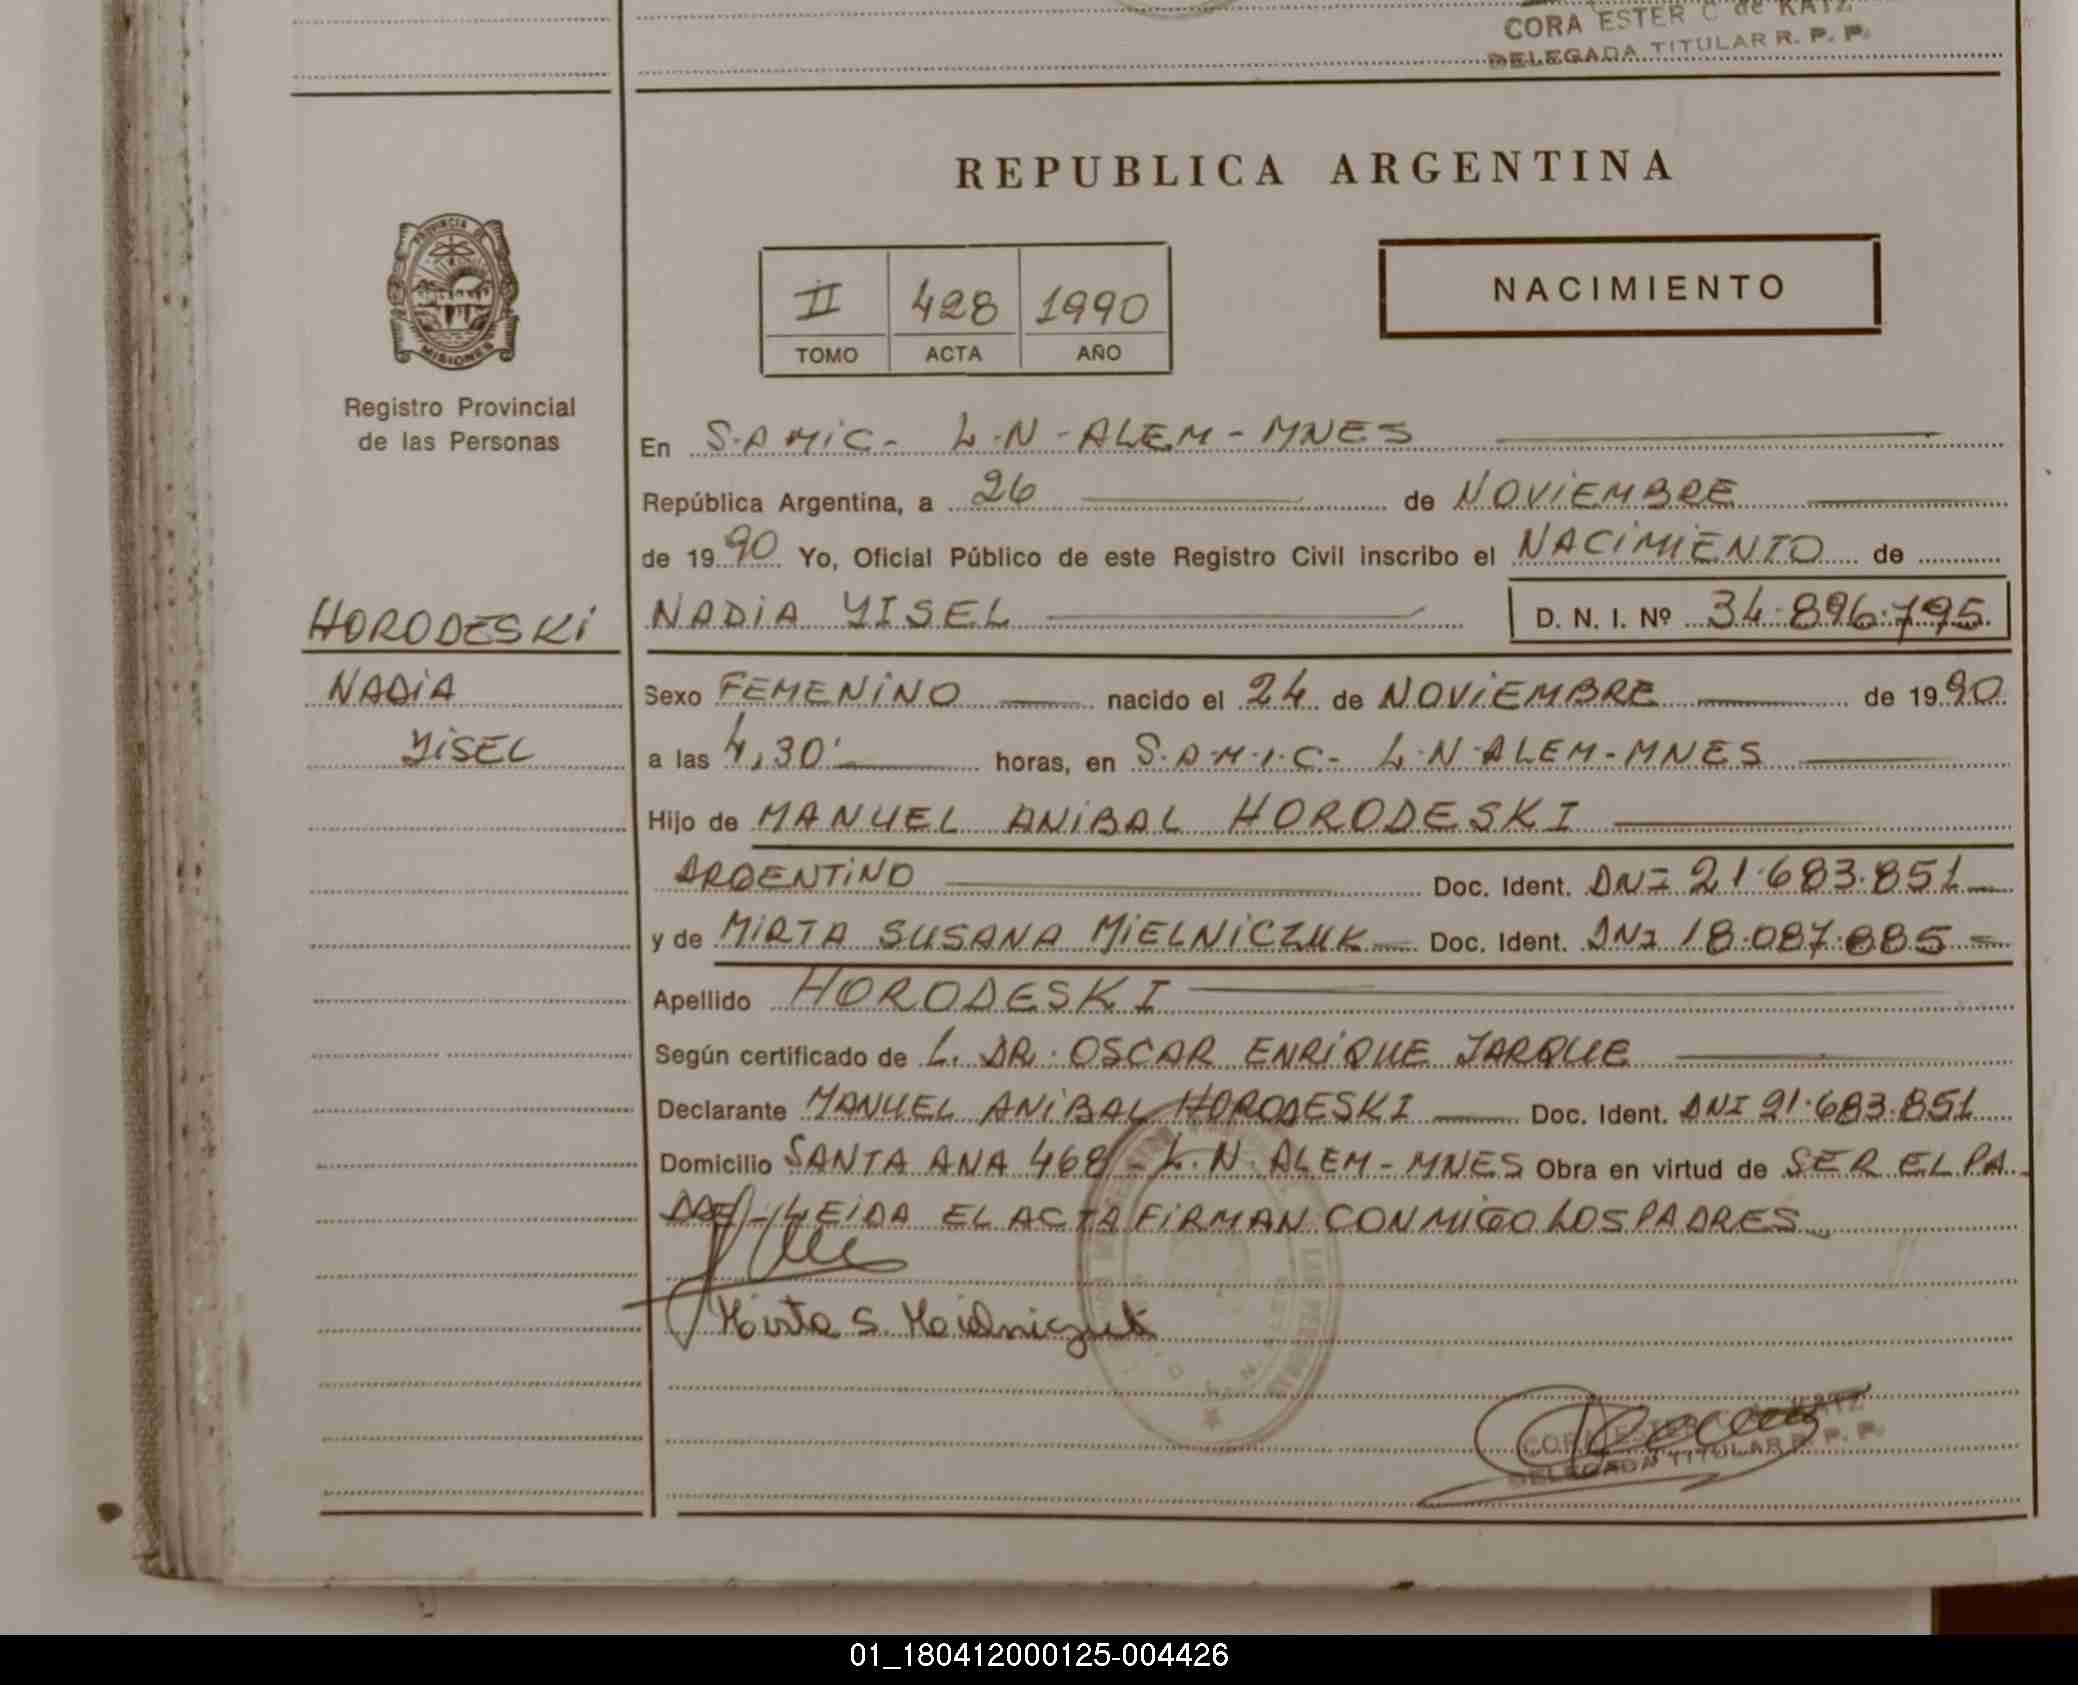 CORA ESTER C de KATZ
DELEGADA TITULAR R. P. P.
REPUBLICA ARGENTINA
PROVINCIA DE
MISIONES
Registro Provincial
de las Personas
II 428 1990
TOMO ACTA AÑO
NACIMIENTO
En S.A.MIC- L.N-ALEM-MNES
República Argentina, a 26 de NOVIEMBRE
de 1990 Yo, Oficial Público de este Registro Civil inscribo el NACIMIENTO de
HORODESKI
NADIA
YISEL
NADIA YISEL D. N. I. Nº 34.896.795.
Sexo FEMENINO nacido el 24 de NOVIEMBRE de 1990
a las 4,30' horas, en S.A.M.I.C- L.N-ALEM-MNES
Hijo de MANUEL ANIBAL HORODESKI
ARGENTINO Doc. Ident. DNI 21.683.851
y de MIRTA SUSANA MIELNICZUK Doc. Ident. DNI 18.087.885
Apellido HORODESKI
Según certificado de L. DR. OSCAR ENRIQUE JARQUE
Declarante MANUEL ANIBAL HORODESKI Doc. Ident. DNI 21.683.851
Domicilio SANTA ANA 468 - L.N. ALEM-MNES Obra en virtud de SER EL PA-
DRE/-LEIDA EL ACTA FIRMAN CONMIGO LOS PADRES
Mirta S. Mielniczuk
CORA ESTER C de KATZ
DELEGADA TITULAR R. P. P.
01_180412000125-004426